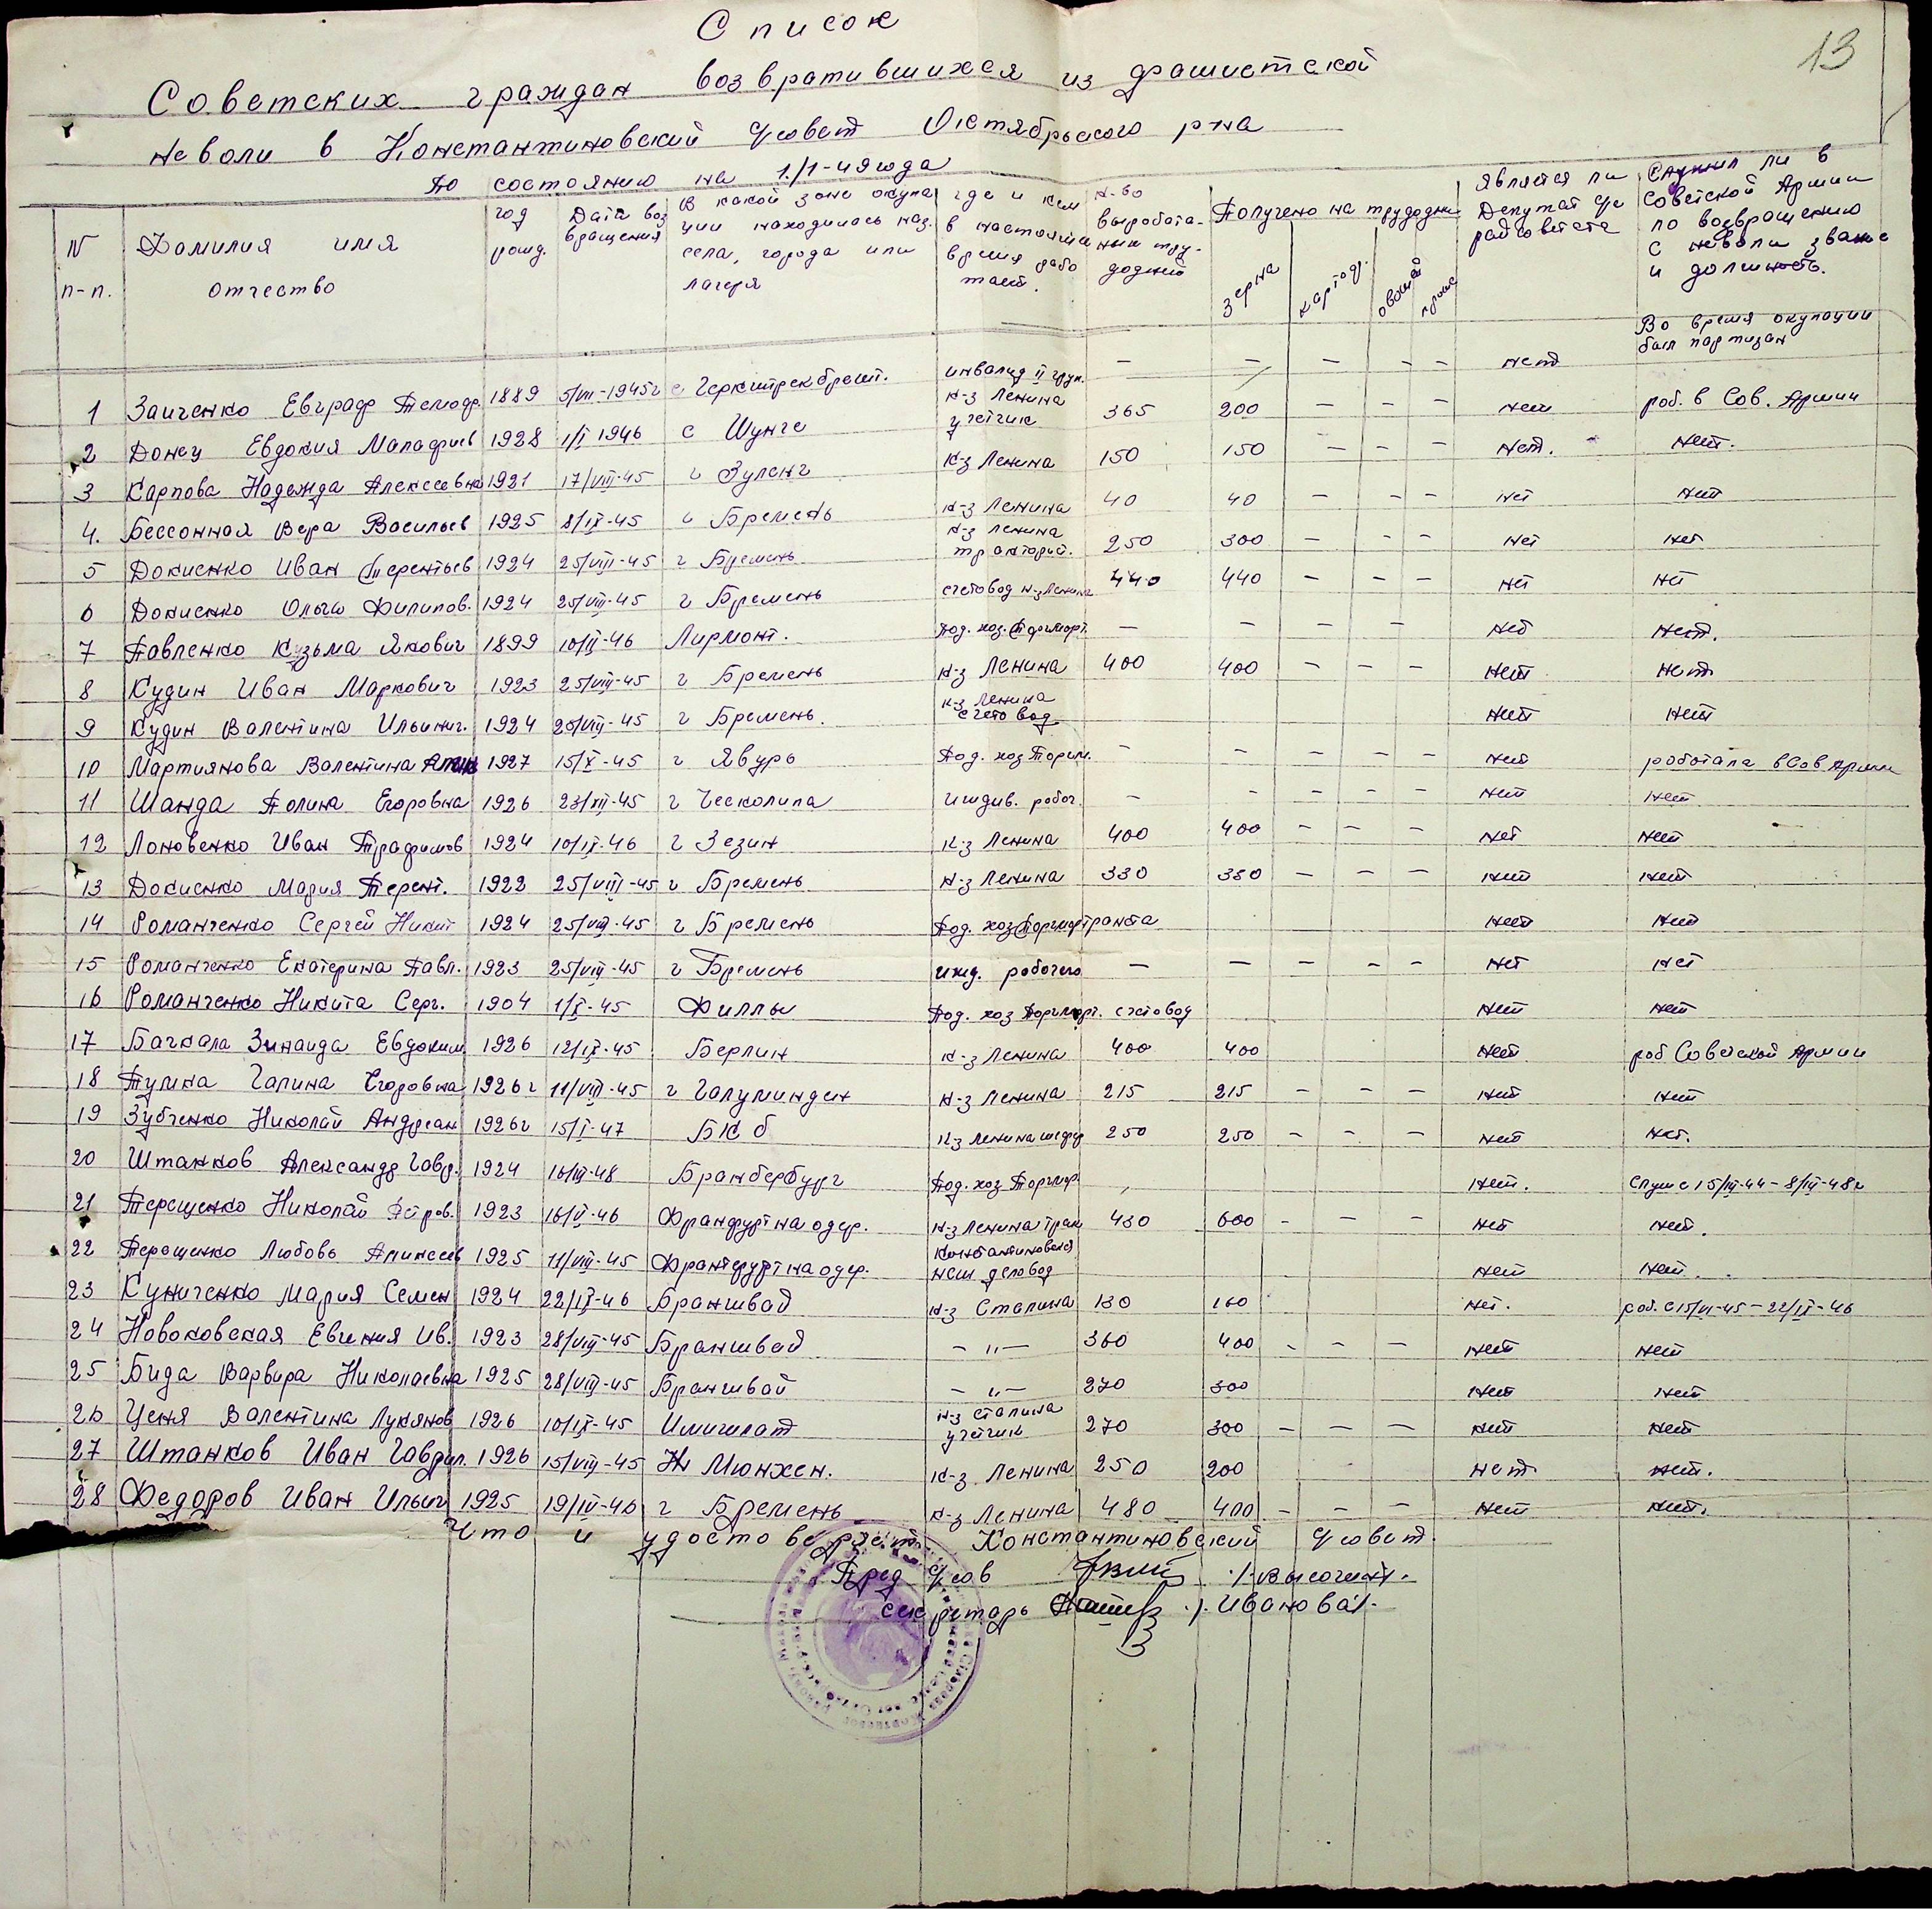 13
Список
Советских граждан возвратившихся из фашистской
неволи в Константиновский с/совет Октябрьского р-на
по состоянию на 1./1-49 года
N п-п. Фамилия имя отчество год рожд. Дата возвращения В какой зоне окупации находилось наз. села, города или лагеря где и кем в настоящее время работает. к-во выработанных трудодней Получено на трудодни зерна картоф. овощей Является ли Депутат с/с райсовета Служил ли в Советской Армии по возвращению с неволи звание и должность.
Во время окупации был партизан
1 Заиченко Евграф 1889 5/VII-1945г инвалид II груп. — — — — — нет
2 Донец Евдокия Малафиев 1928 1/I 1946 с Шунге к-з Ленина учетчик 365 200 — — — нет роб. в Сов. Армии
3 Карпова Надежда Алексеевна 1921 17/VIII-45 г Зуленг к-з Ленина 150 150 — — — нет. нет.
4. Бессонная Вера Васильев 1925 8/IX-45 г Бремень к-з Ленина 40 40 — — — нет нет
5 Докиенко Иван Терентьев 1924 25/VIII-45 г Бремень к-з Ленина тракторист. 250 300 — — — нет нет
6 Докиенко Ольга Филипов. 1924 25/VIII-45 г Бремень счетовод к-з Ленина 440 440 — — — нет нет
7 Павленко Кузьма Якович 1899 10/II-46 Лирмонт. Под. хоз. — — — — — нет нет.
8 Кудин Иван Маркович 1923 25/VIII-45 г Бремень к-з Ленина 400 400 — — — нет нет
9 Кудин Валентина Ильинич. 1924 25/VIII-45 г Бремень. к-з Ленина счетовод нет нет
10 Мартиянова Валентина 1927 15/X-45 г Явурь Под. хоз Торгм. — — — — — нет роботала в Сов Армии
11 Шанда Полина Егоровна 1926 23/XII-45 г Ческолипа иждив. робоч. — — — — — нет нет
12 Лоновенко Иван Трафимов 1924 10/IX-46 г Зезин к-з Ленина 400 400 — — — нет нет
13 Докиенко Мария Терент. 1922 25/VIII-45 г Бремень к-з Ленина 330 330 — — — нет нет
14 Романченко Сергей Никит 1924 25/VIII-45 г Бремень Под. хоз нет нет
15 Романченко Екатерина Павл. 1923 25/VIII-45 г Бремень ижд. робочего — — — — — нет нет
16 Романченко Никита Серг. 1904 1/X-45 Филлы Под. хоз счетовод нет нет
17 Бачкала Зинаида Евдоким 1926 12/IX-45 Берлин к-з Ленина 400 400 нет роб Советской Армии
18 Тулика Галина Егоровна 1926г 11/VIII-45 г Галуминден к-з Ленина 215 215 — — — нет нет
19 Зубченко Николай Андреан 1926г 15/I-47 к-з Ленина шофер 250 250 — — — нет нет.
20 Штанков Александр Гавр. 1924 Бранбербург Под. хоз нет. служ с 15/III-44 - 8/III-48г
21 Терещенко Николай Петров. 1923 16/V-46 Франфурт на одер. к-з Ленина трак 430 600 — — — нет нет.
22 Терещенко Любовь Аликсеев 1925 11/VIII-45 Франкфурт на одер. Константиновская нсш деловод нет нет.
23 Куниченко Мария Семен 1924 22/IX-46 Браншвад к-з Сталина 130 160 нет. роб. с 15/VI-45 - 22/IX-46
24 Новоковская Евгения Ив. 1923 28/VIII-45 Браншвад — " — 360 400 — — — нет нет
25 Бида Варвира Николаевна 1925 28/VIII-45 Браншвай — " — 270 300 нет нет
26 Ценя Валентина Лукянов 1926 10/IX-45 Имишлат к-з Сталина учетчик 270 300 — — — нет нет
27 Штанков Иван Гаврил. 1926 15/VIII-45 Мюнхен. к-з Ленина 250 200 нет нет.
28 Федоров Иван Ильич 1925 19/IV-46 г Бремень к-з Ленина 480 400 — — — нет нет.
Что и удостоверяет Константиновский с/совет.
Пред с/сов
секретарь /. Иванова/.